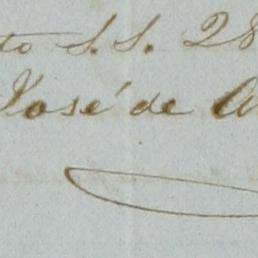 to S. S. 28
José de A